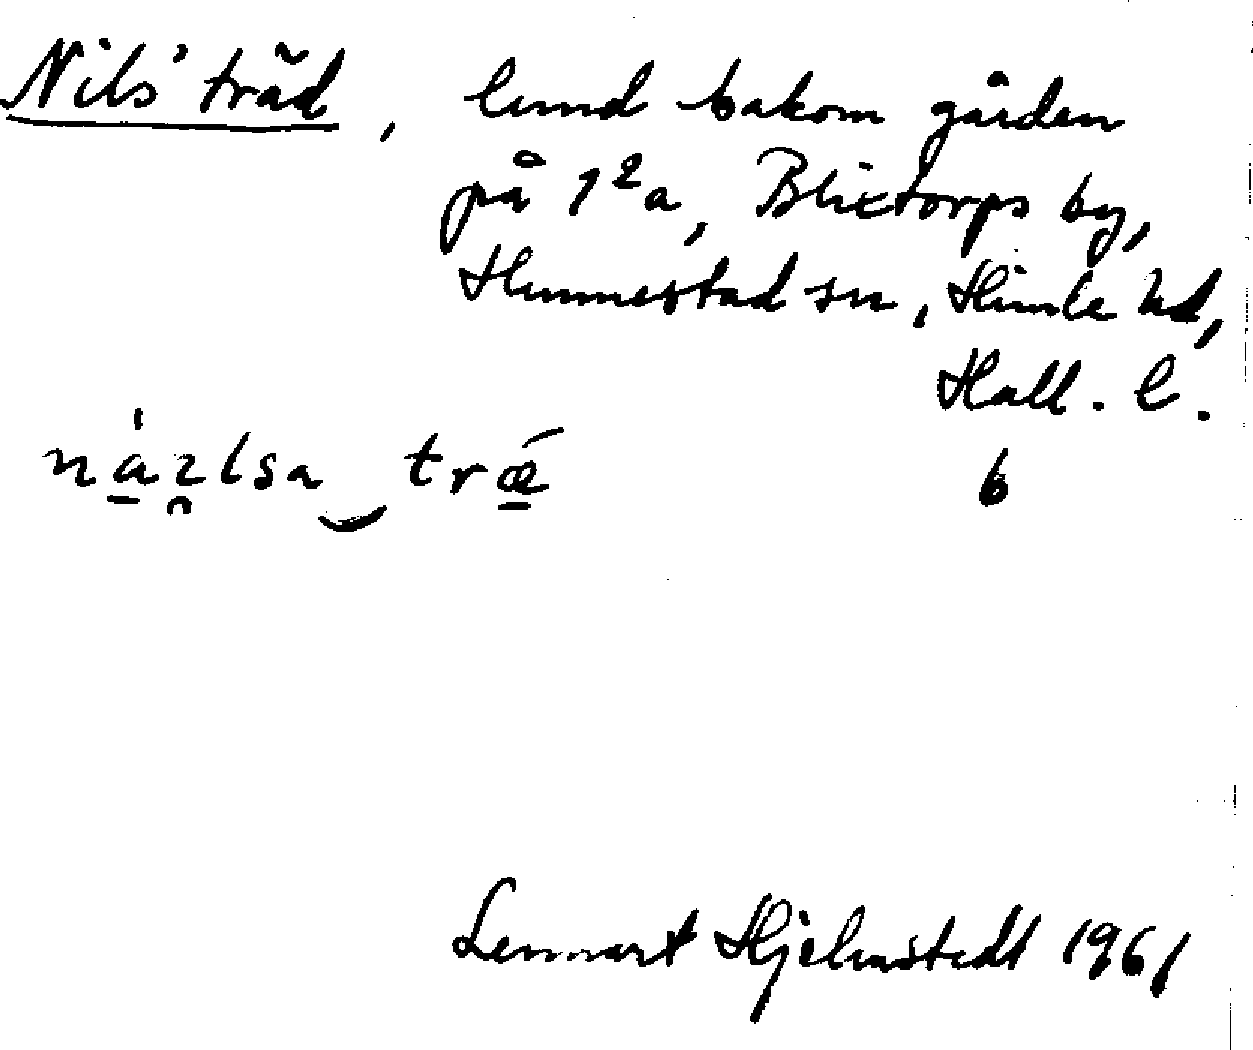 Nils' träd, lund bakom gården
på 1²a, Blixtorps by,
Hunnestad sn, Himle hd,
Hall. l.
6
Lennart Hjelmstedt 1961